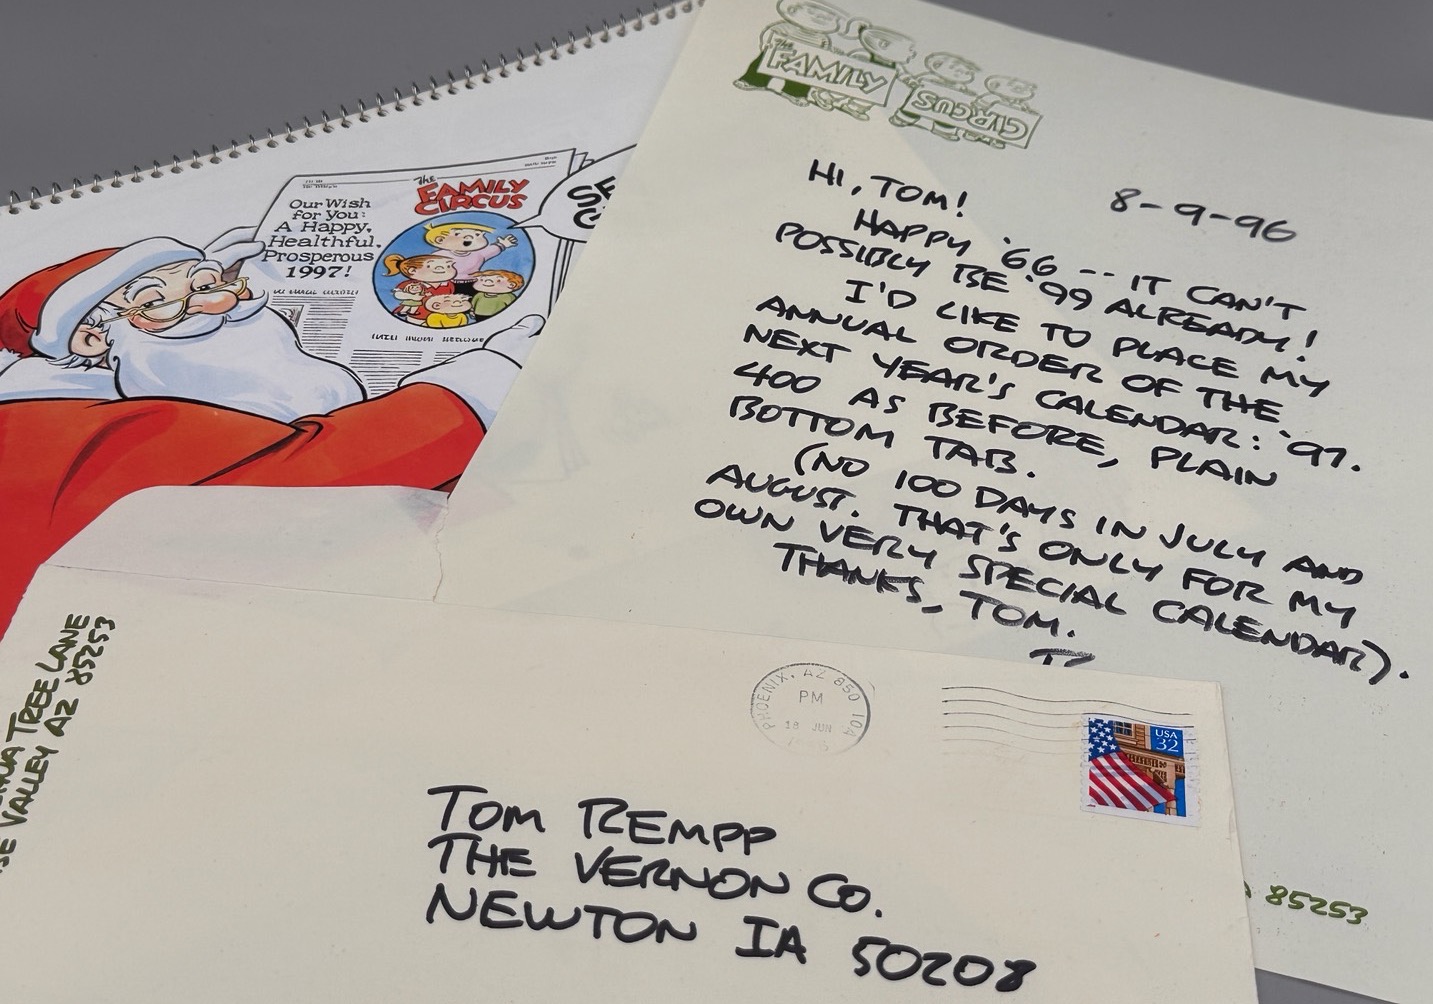 Our Wish
for you:
A Happy,
Healthful,
Prosperous
1997!
The
FAMILY
CIRCUS
The
FAMILY
CIRCUS
8-9-96
HI, TOM!
HAPPY '66 -- IT CAN'T
POSSIBLY BE '99 ALREADY!
I'D LIKE TO PLACE MY
ANNUAL ORDER OF THE
NEXT YEAR'S CALENDAR: '97.
400 AS BEFORE, PLAIN
BOTTOM TAB.
(NO 100 DAYS IN JULY AND
AUGUST. THAT'S ONLY FOR MY
OWN VERY SPECIAL CALENDAR).
THANKS, TOM.
85253
TREE LANE
VALLEY AZ 85253
PHOENIX, AZ 850
PM
18 JUN
USA
32
TOM REMPP
THE VERNON CO.
NEWTON IA 50208